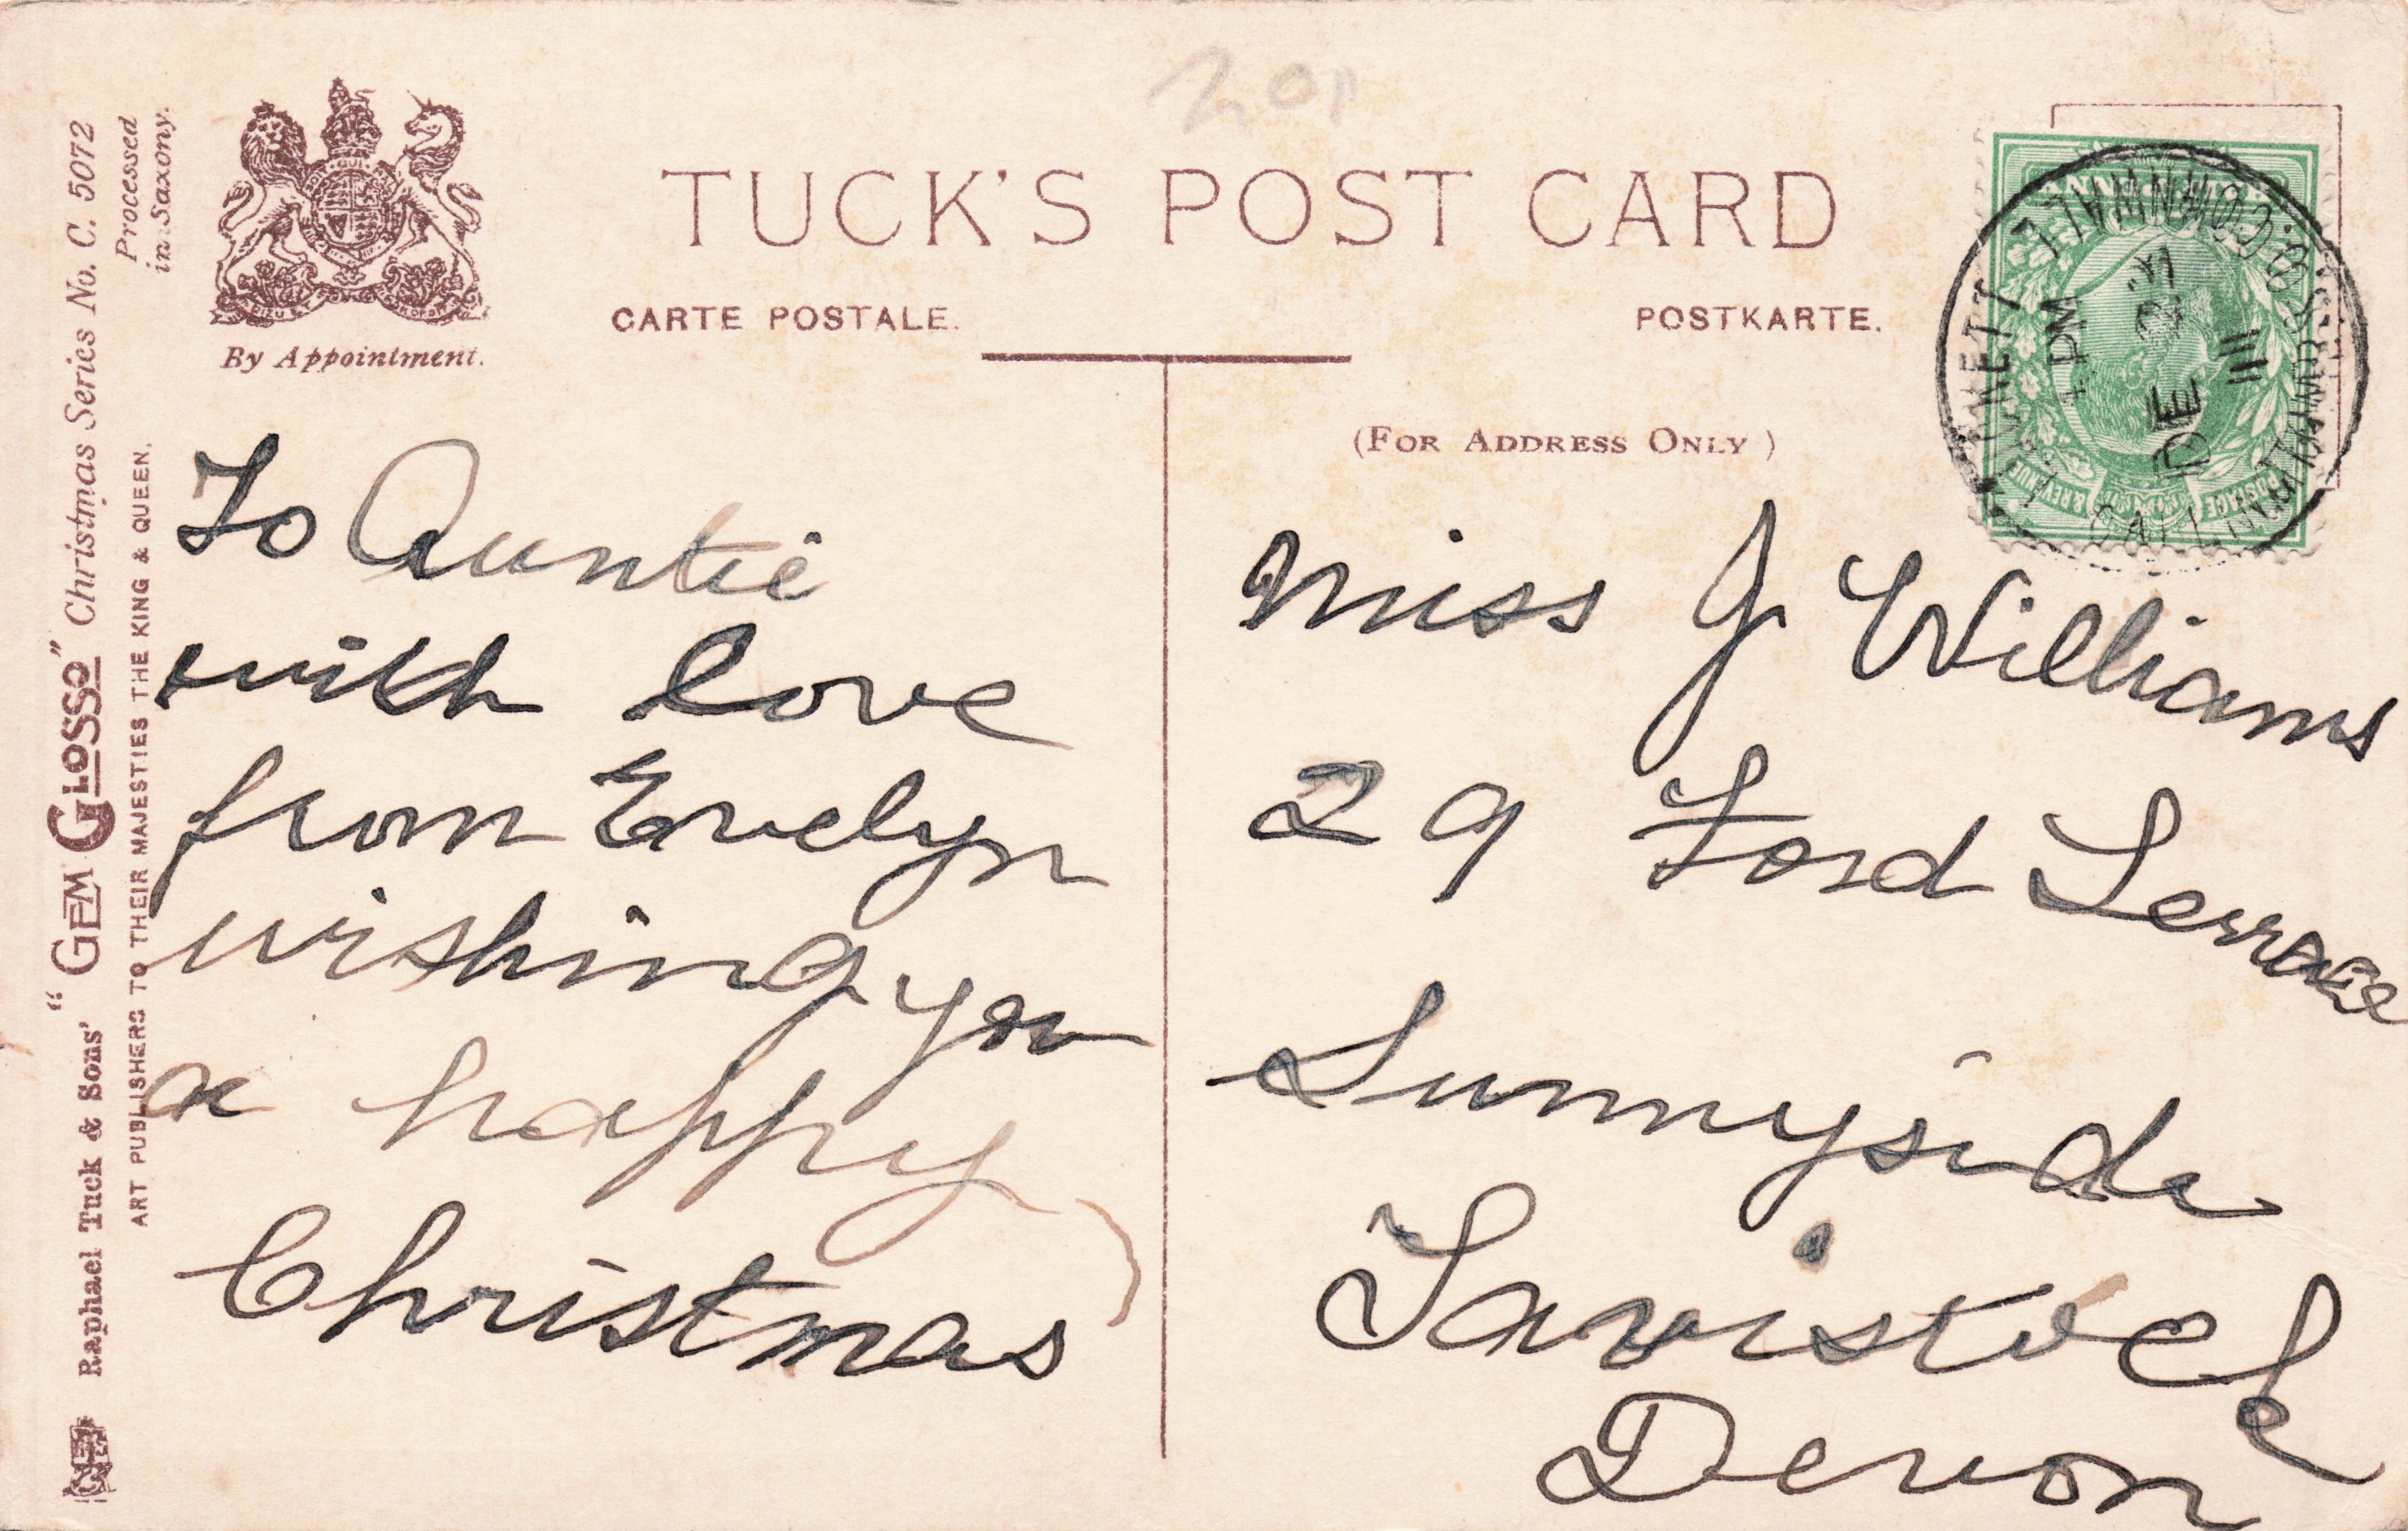 TUCK'S POST CARD
CARTE POSTALE.
POSTKARTE.
By Appointment.
(FOR ADDRESS ONLY)
Raphael Tuck & Sons' "GEM GLOSSO" Christmas Series No. C. 5072
Processed
in Saxony.
ART PUBLISHERS TO THEIR MAJESTIES THE KING & QUEEN.
To Auntie
with love
from Evelyn
wishing you
a happy
Christmas
Miss J Williams
29 Ford Terrace
Sunnyside
Tavistock
Devon
CORNWALL
PM
DE 23
11
POSTAGE & REVENUE